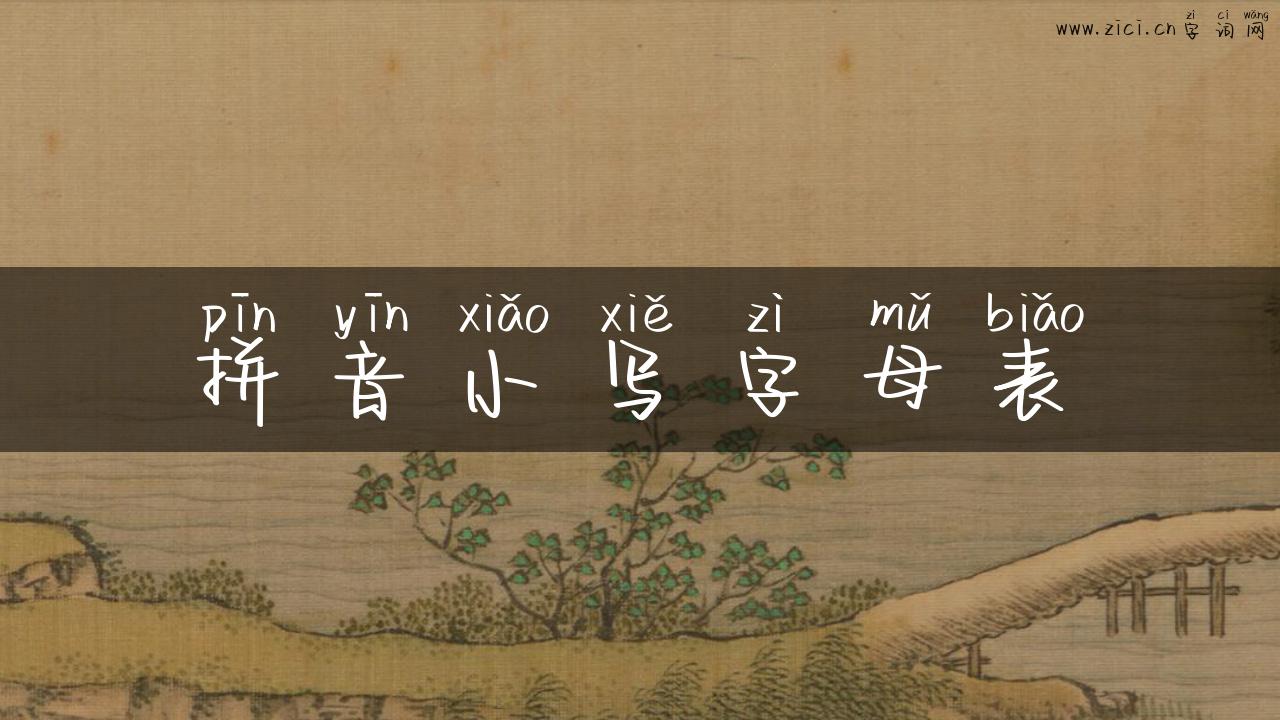 zì cí wǎng
www.zici.cn 字词网
pīn yīn xiǎo xiě zì mǔ biǎo
拼音小写字母表